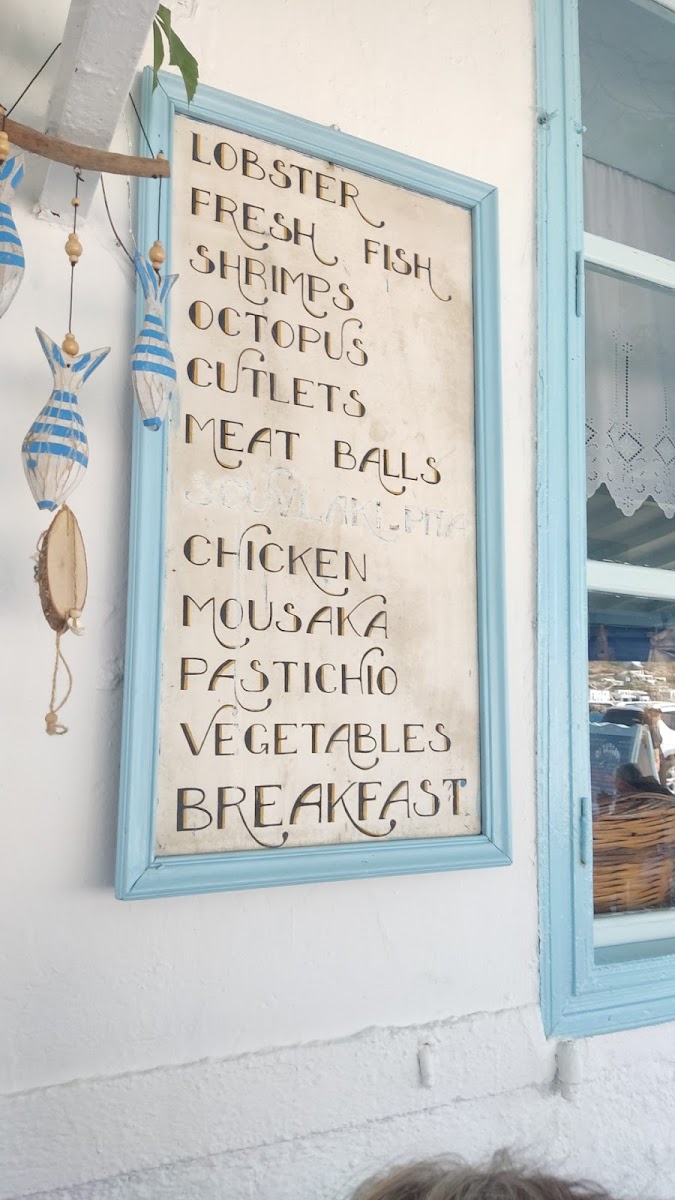 LOBSTER
FRESH FISH
SHRIMPS
OCTOPUS
CUTLETS
MEAT BALLS
SOUVLAKI-PITA
CHICKEN
MOUSAKA
PASTICHIO
VEGETABLES
BREAKFAST